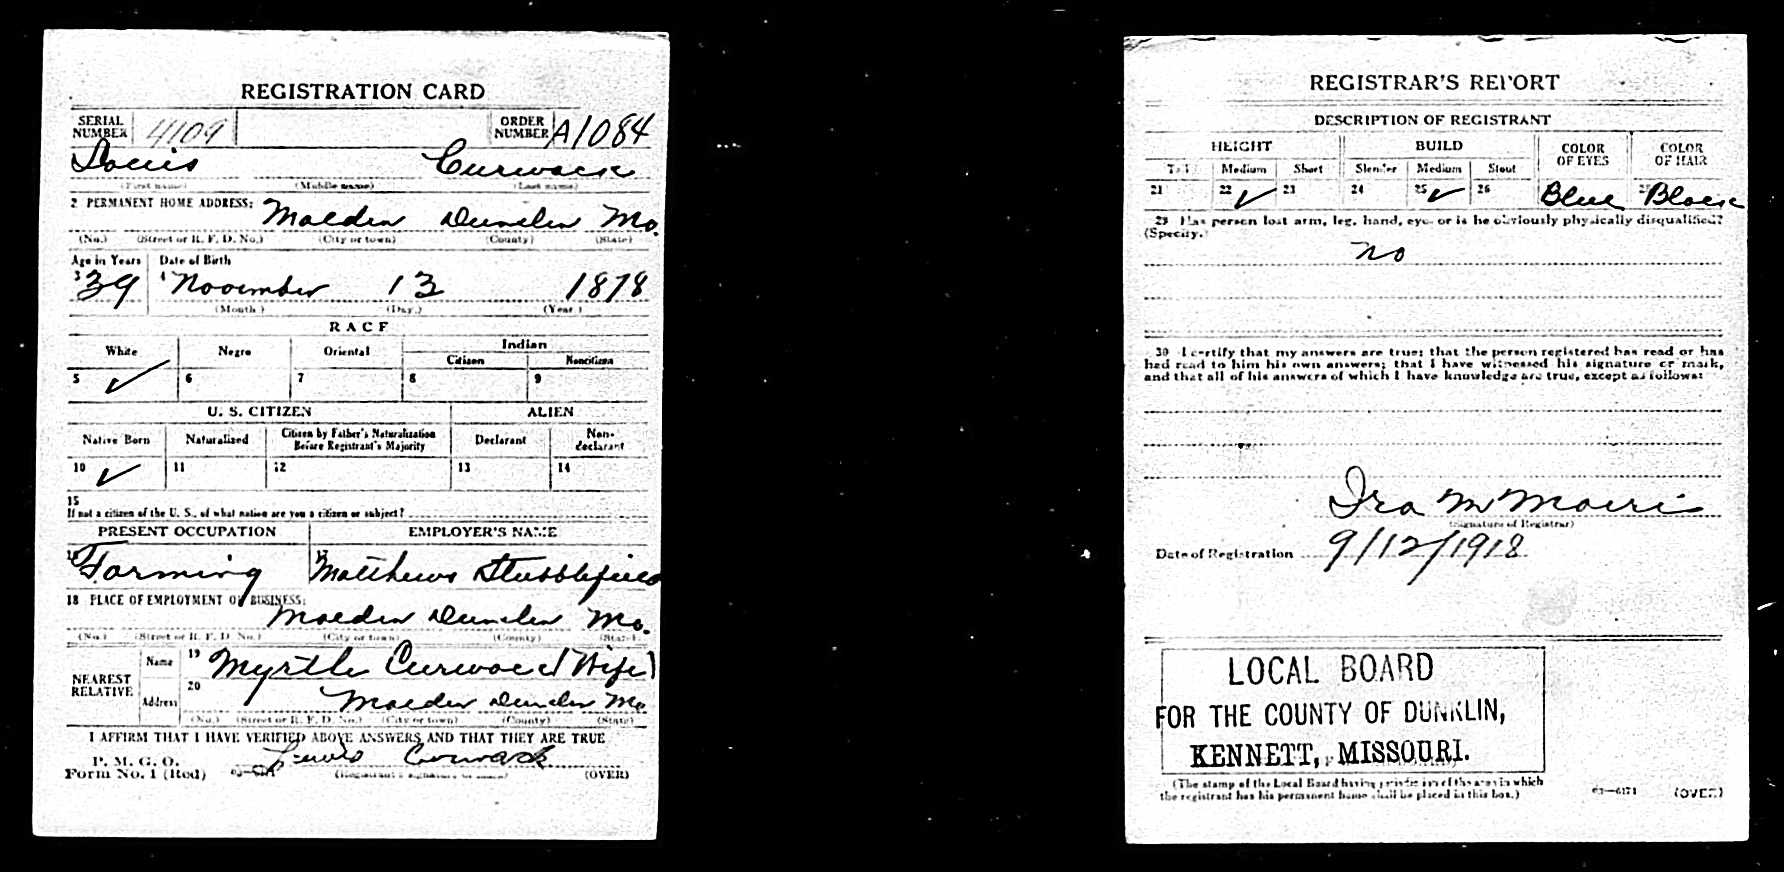 REGISTRATION CARD
SERIAL NUMBER 4109 ORDER NUMBER A1084
Louis Curwack
(First name) (Middle name) (Last name)
2 PERMANENT HOME ADDRESS: Malden Dunklin Mo.
(No.) (Street or R. F. D. No.) (City or town) (County) (State)
Age in Years Date of Birth
3 39 4 November 13 1878
(Month.) (Day.) (Year.)
RACE
White Negro Oriental Indian
Citizen Noncitizen
5 ✓ 6 7 8 9
U. S. CITIZEN ALIEN
Native Born Naturalized Citizen by Father's Naturalization Before Registrant's Majority Declarant Non-declarant
10 ✓ 11 12 13 14
15
If not a citizen of the U. S., of what nation are you a citizen or subject?
PRESENT OCCUPATION EMPLOYER'S NAME
16 Farming 17 Matthews Stubblefield
18 PLACE OF EMPLOYMENT OR BUSINESS:
Malden Dunklin Mo.
(No.) (Street or R. F. D. No.) (City or town) (County) (State)
NEAREST RELATIVE Name 19 Myrtle (Wife)
Address 20 Malden Dunklin Mo
(No.) (Street or R. F. D. No.) (City or town) (County) (State)
I AFFIRM THAT I HAVE VERIFIED ABOVE ANSWERS AND THAT THEY ARE TRUE
P. M. G. O.
Form No. 1 (Red) 03—6171 Lewis (Registrant's signature or mark) (OVER)
REGISTRAR'S REPORT
DESCRIPTION OF REGISTRANT
HEIGHT BUILD COLOR OF EYES COLOR OF HAIR
Tall Medium Short Slender Medium Stout
21 22 ✓ 23 24 25 ✓ 26 Blue Black
29 Has person lost arm, leg, hand, eye, or is he obviously physically disqualified?
(Specify.)
no
30 I certify that my answers are true; that the person registered has read or has
had read to him his own answers; that I have witnessed his signature or mark,
and that all of his answers of which I have knowledge are true, except as follows:
Ira M Morris
(Signature of Registrar)
Date of Registration 9/12/1918
LOCAL BOARD
FOR THE COUNTY OF DUNKLIN,
KENNETT, MISSOURI.
(The stamp of the Local Board having jurisdiction of the area in which
the registrant has his permanent home shall be placed in this box.)
03—6171 (OVER)